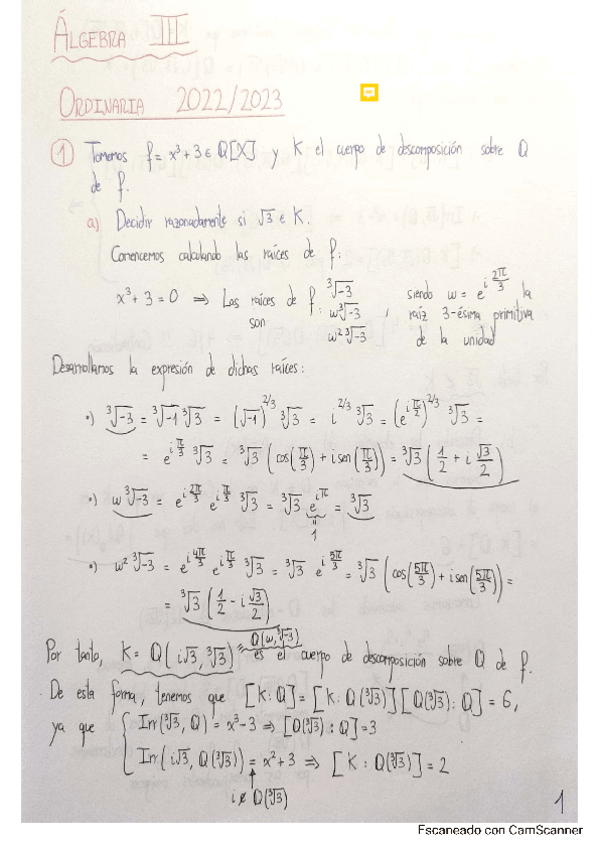 ÁLGEBRA III
ORDINARIA 2022/2023
① Tomemos f = x³ + 3 ∈ Q[X] y K el cuerpo de descomposición sobre Q
de f.
a) Decidir razonadamente si √3 ∈ K.
Comencemos calculando las raíces de f:
x³ + 3 = 0 ⟹ Las raíces de f son : ∛-3, w∛-3, w²∛-3 , siendo w = e^(i 2π/3) la
raíz 3-ésima primitiva
de la unidad
Desarrollamos la expresión de dichas raíces:
•) ∛-3 = ∛-1 ∛3 = (√-1)^(2/3) ∛3 = i^(2/3) ∛3 = (e^(i π/2))^(2/3) ∛3 =
= e^(i π/3) ∛3 = ∛3 (cos(π/3) + i sen(π/3)) = ∛3 (1/2 + i √3/2)
•) w ∛-3 = e^(i 2π/3) e^(i π/3) ∛3 = ∛3 e^(iπ) = ∛3
"
1
•) w² ∛-3 = e^(i 4π/3) e^(i π/3) ∛3 = ∛3 e^(i 5π/3) = ∛3 (cos(5π/3) + i sen(5π/3)) =
= ∛3 (1/2 - i √3/2)
Q(w, ∛-3)
Por tanto, K = Q(i√3, ∛3) = es el cuerpo de descomposición sobre Q de f.
De esta forma, tenemos que [K : Q] = [K : Q(∛3)] [Q(∛3) : Q] = 6,
ya que { Irr(∛3, Q) = x³ - 3 ⟹ [Q(∛3) : Q] = 3
Irr(i√3, Q(∛3)) = x² + 3 ⟹ [K : Q(∛3)] = 2
↑
i ∉ Q(∛3)
1
Escaneado con CamScanner